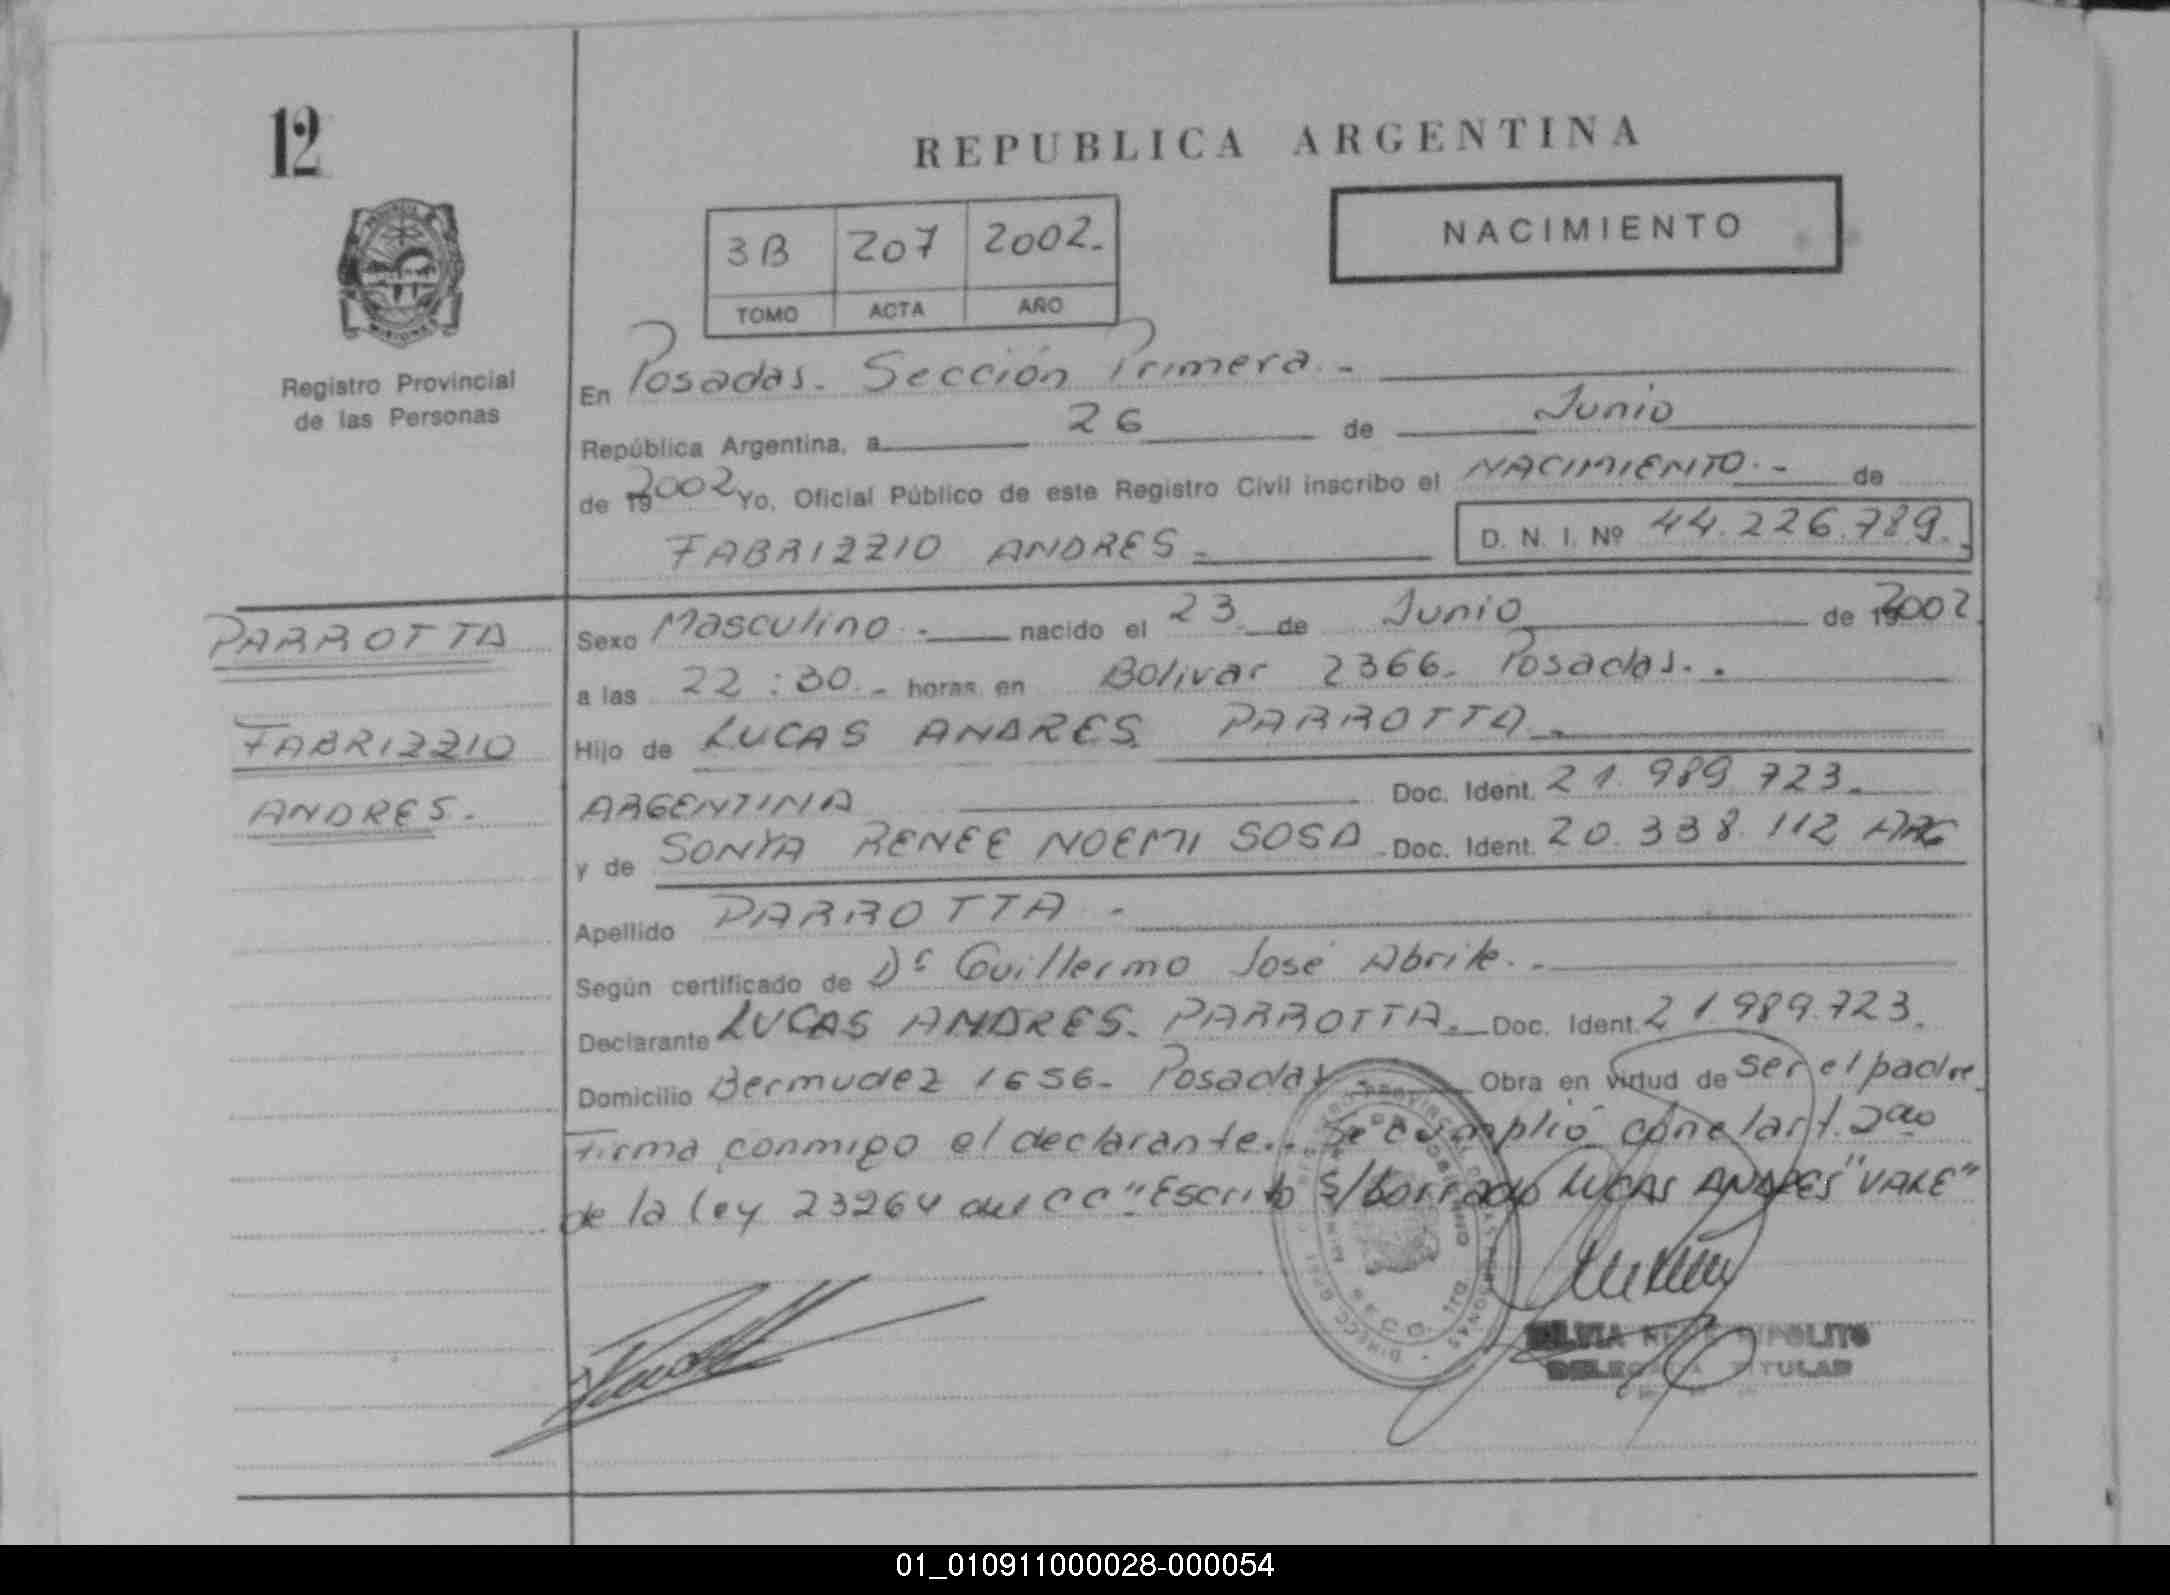 12
REPUBLICA ARGENTINA
3B 207 2002.-
TOMO ACTA AÑO
NACIMIENTO
MISIONES
Registro Provincial
de las Personas
En Posadas. Sección Primera.-
República Argentina, a 26 de Junio
de 192002 Yo, Oficial Público de este Registro Civil inscribo el NACIMIENTO.- de
FABRIZZIO ANDRES.- D. N. I. Nº 44.226.789.
PARROTTA
FABRIZZIO
ANDRES.
Sexo Masculino.- nacido el 23 de Junio de 192002
a las 22:30.- horas en Bolivar 2366. Posadas.
Hijo de LUCAS ANDRES PARROTTA.
ARGENTINA Doc. Ident. 21.989.723.
y de SONYA RENEE NOEMI SOSA Doc. Ident. 20.338.112 ARG
Apellido PARROTTA.-
Según certificado de Dr Guillermo José Abrile.-
Declarante LUCAS ANDRES. PARROTTA. Doc. Ident. 21989.723.
Domicilio Bermudez 1656. Posadas Obra en virtud de ser el padre
Firma conmigo el declarante.. Se cumplió con el art. 2do
de la Ley 23264 del CC "Escrito s/borrado LUCAS ANDRES "VALE"
HIPOLITO
DELEGADA TITULAR
01_010911000028-000054